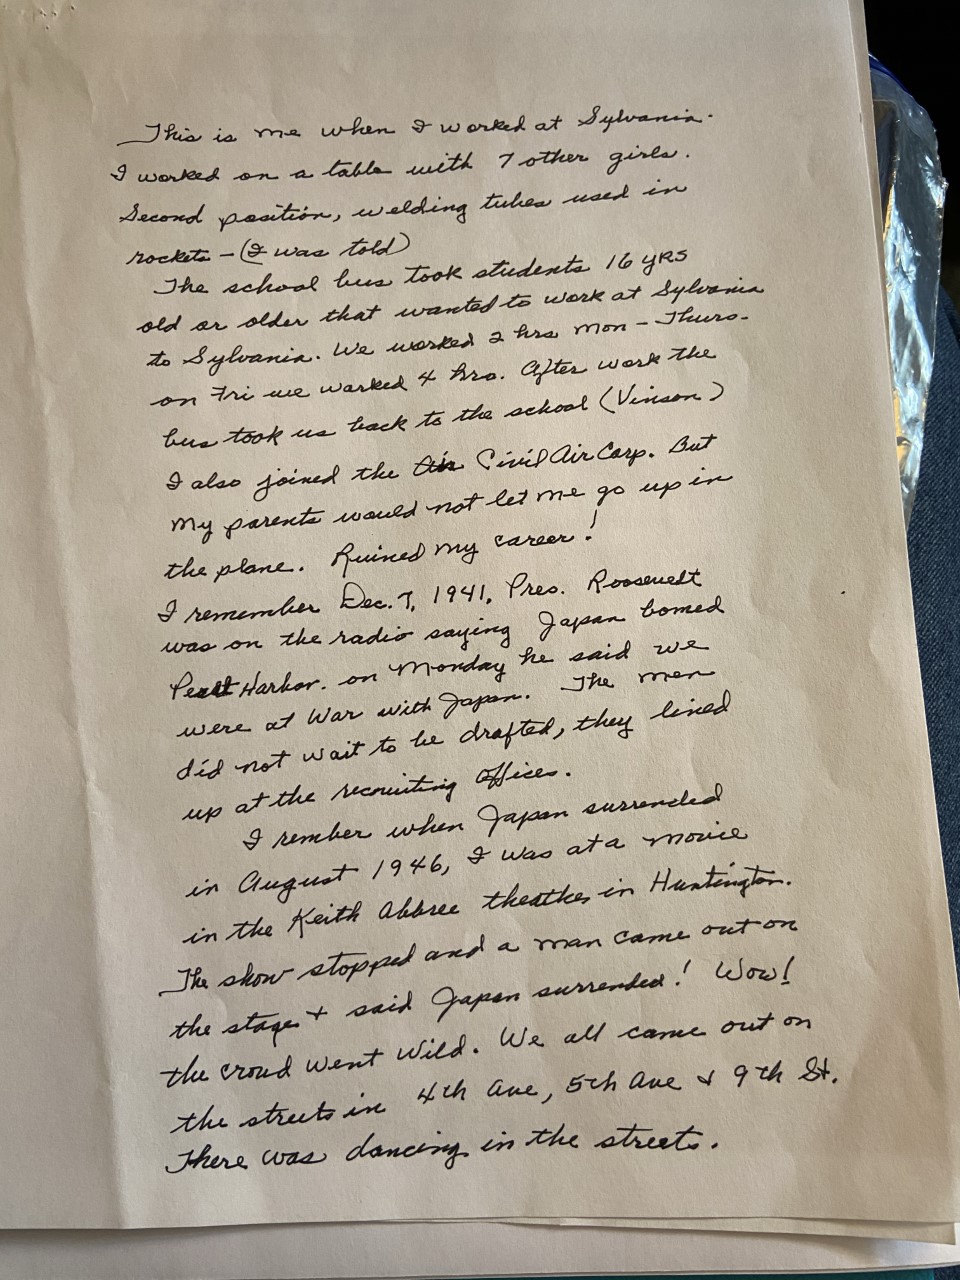 This is me when I worked at Sylvania.
I worked on a table with 7 other girls.
Second position, welding tubes used in
rockets - (I was told)
The school bus took students 16 YRS
old or older that wanted to work at Sylvania
to Sylvania. We worked 2 hrs Mon - Thurs.
on Fri we worked 4 hrs. After work the
bus took us back to the school (Vinson)
I also joined the Civil Air Corp. But
My parents would not let me go up in
the plane. Ruined my career!
I remember Dec. 7, 1941, Pres. Roosevelt
was on the radio saying Japan bomed
Pearl Harbor. on Monday he said we
were at War with Japan. The men
did not wait to be drafted, they lined
up at the recruiting offices.
I rember when Japan surrended
in August 1946, I was at a movie
in the Keith Albree theather in Huntington.
The show stopped and a man came out on
the stage + said Japan surrended! Wow!
the croud went wild. We all came out on
the streets in 4th Ave, 5th Ave & 9th St.
There was dancing in the streets.